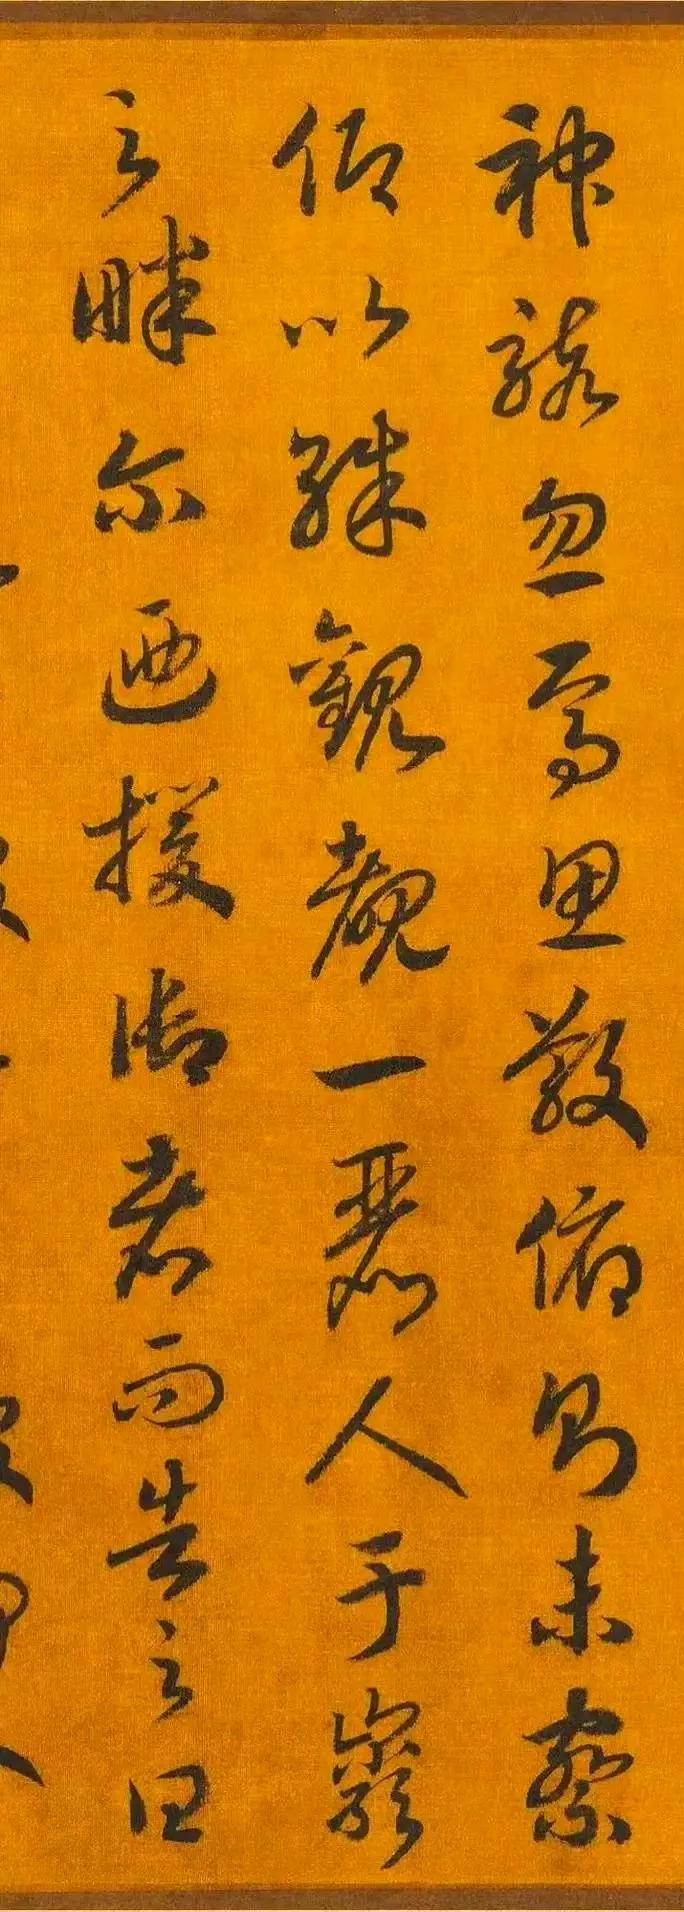 神駭忽焉思散俯則未察
仰以殊觀覩一麗人于巖
之畔尔迺援御者而告之曰